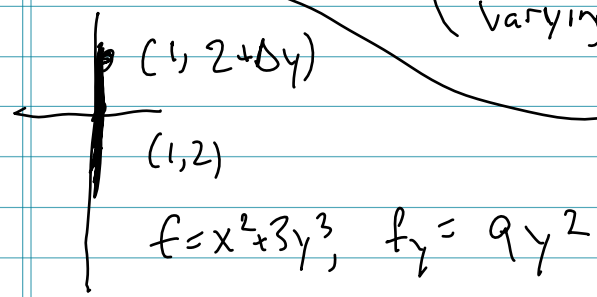 ( varying
(1, 2+Δy)
(1,2)
f=x²+3y³, fy = 9y²